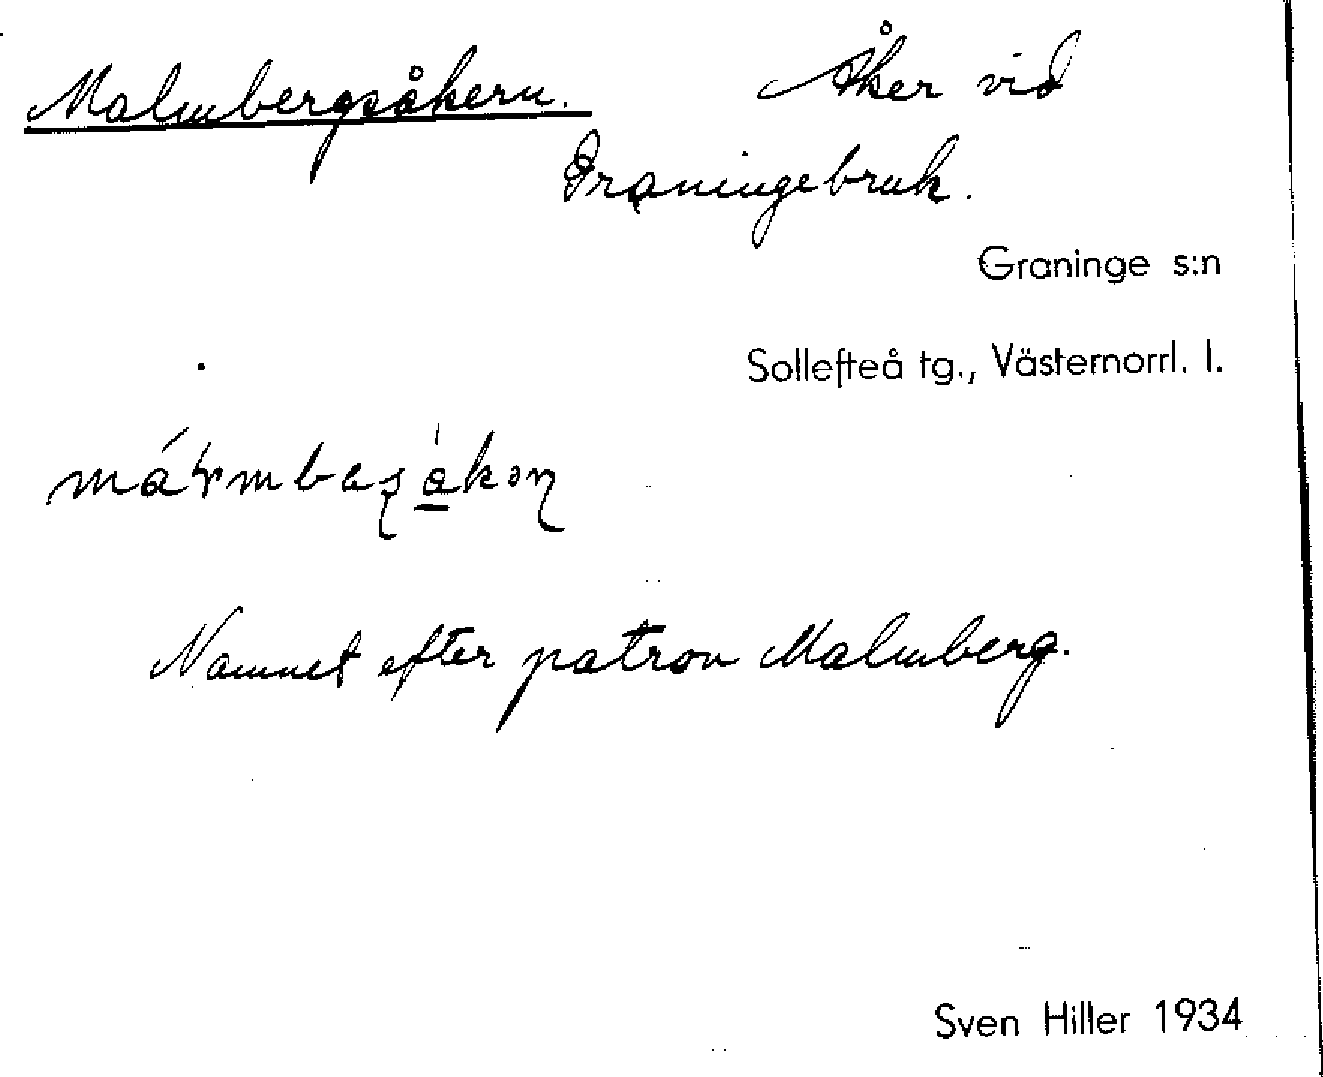 Malmbergsåkern. Åker vid
Graningebruk.
Graninge s:n
Sollefteå tg., Västernorrl. l.
Namnet efter patron Malmberg.
Sven Hiller 1934